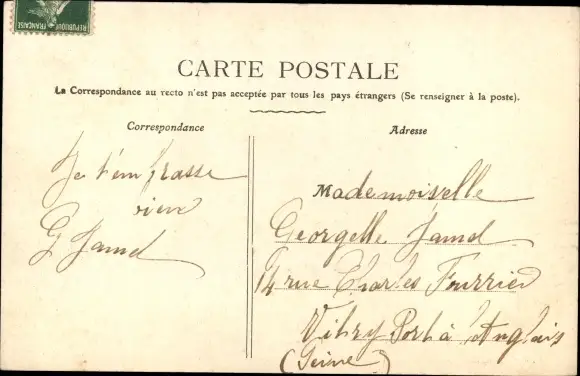 REPUBLIQUE FRANÇAISE
CARTE POSTALE
La Correspondance au recto n'est pas acceptée par tous les pays étrangers (Se renseigner à la poste).
Correspondance
Je t'embrasse
bien
G Jamd
Adresse
Mademoiselle
Georgette Jamd
14 rue Charles Fourrier
Vitry Port à l'Anglais
(Seine)